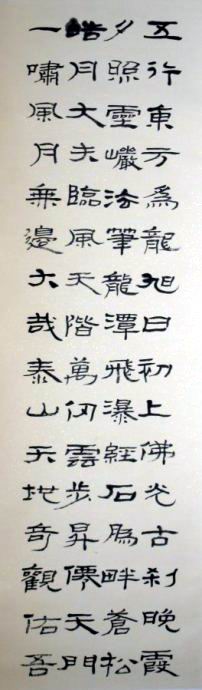 五行東方為龍旭日初上佛光古刹晚霞
夕照靈巖法筆龍潭飛瀑經石畔蒼松
皓月大夫臨風天階萬仞雲步昇僊天門
一嘯風月無邊大哉泰山天地奇觀佑吾